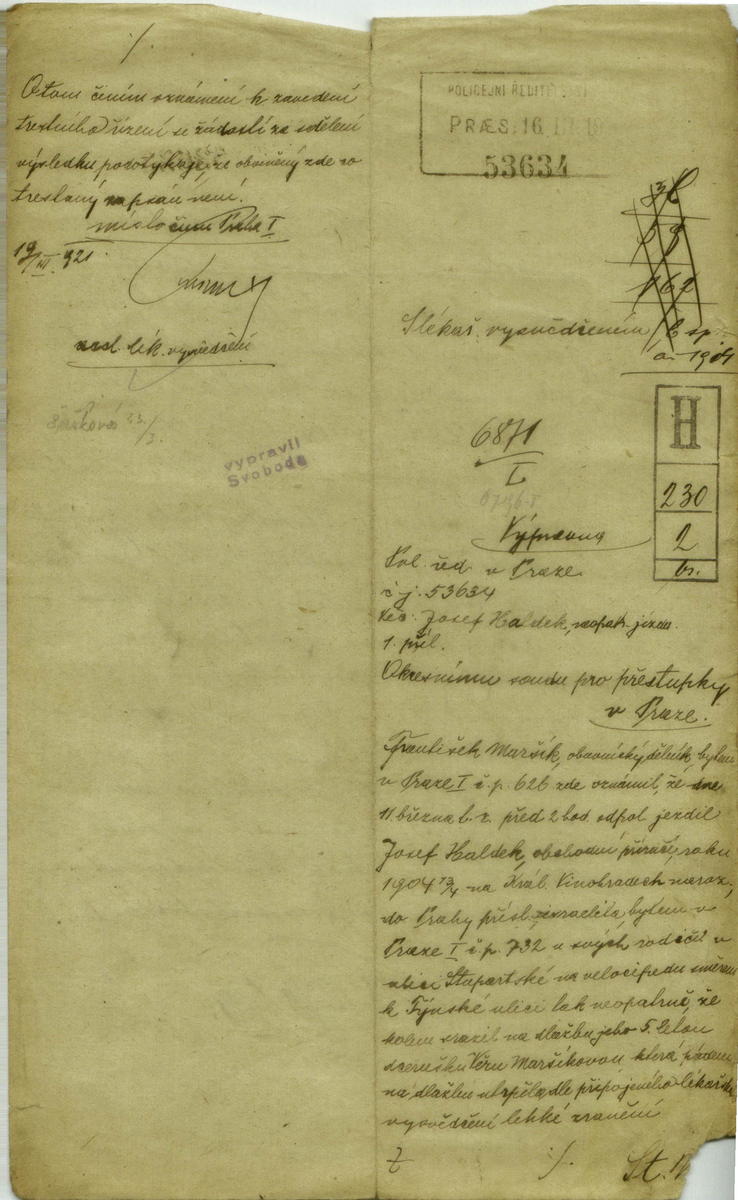 ./.
O tom činím oznámení k zavedení
trestního řízení se žádostí za sdělení
výsledku podotýkaje, že obviněný zde co
trestaný zapsán není.
Praha I
19/III. 921.
lék. vysvědčení
23/3.
vypravil
Svoboda
POLICEJNÍ ŘEDITELSTVÍ
PRÆS: 16. III. 19
53634
S lékař. vysvědčením
6871
I
H
230
2
Výpravna
Pol. řed. v Praze
č. j. 53634
Věc: Josef Haldek, neopatr. jízda.
1. příl.
Okresnímu soudu pro přestupky
v Praze.
František Maršík, obuvnický dělník, bytem
v Praze I č. p. 626 zde oznámil, že dne
11 března t. r. před 2 hod. odpol. jezdil
Josef Haldek, obchodní příručí, roku
1904 13/4 na Král. Vinohradech naroz.,
do Prahy přísl. izraelita, bytem v
Praze I č. p. 732 u svých rodičů v
ulici Stupartské na velocipedu směrem
k Týnské ulici tak neopatrně, že
kolem srazil na dlažbu jeho 5. letou
dcerušku Věru Maršíkovou, která pádem
na dlažbu utrpěla dle připojeného lékařské
vysvědčení lehké zranění
./.
St.